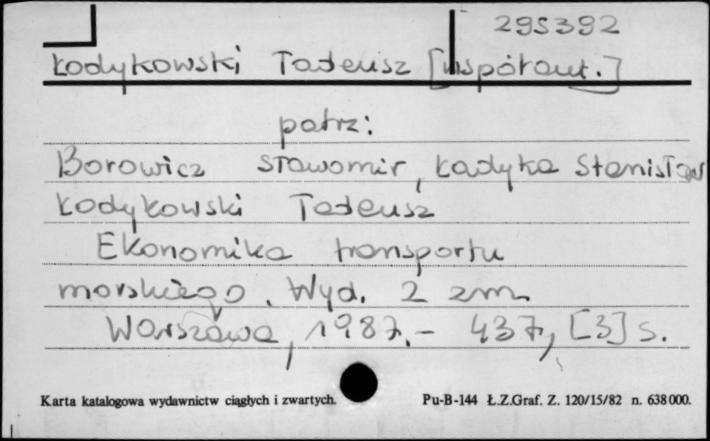 295392
Łodykowski Tadeusz [współaut.]
patrz:
Borowicz Sławomir, Ładyka Stanisław
Łodykowski Tadeusz
Ekonomika transportu
morskiego. Wyd. 2 zm.
Warszawa, 1987. - 437, [3] s.
Karta katalogowa wydawnictw ciągłych i zwartych.
Pu-B-144 Ł.Z.Graf. Z. 120/15/82 n. 638 000.